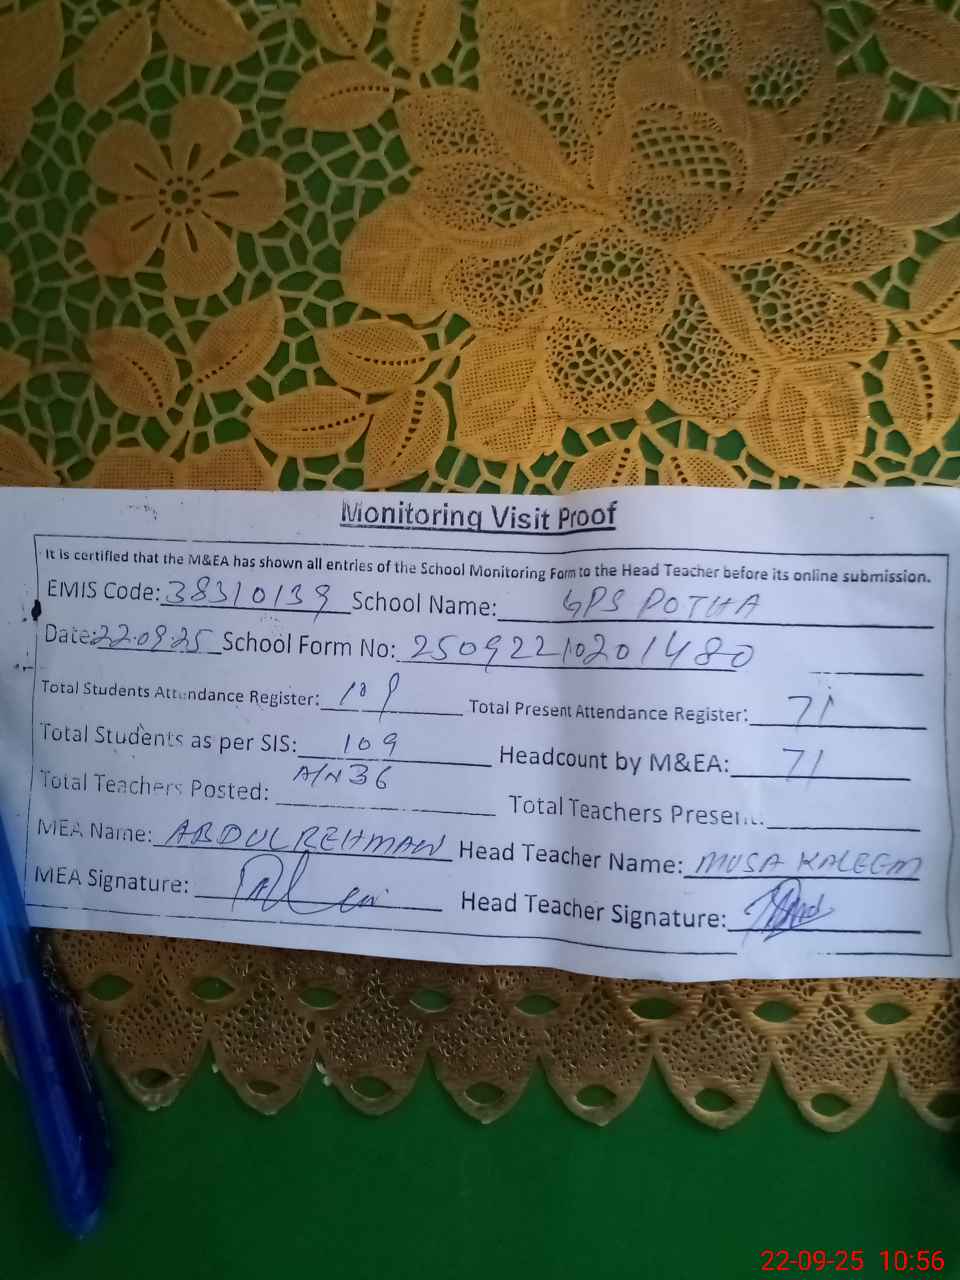 Monitoring Visit Proof
It is certified that the M&EA has shown all entries of the School Monitoring Form to the Head Teacher before its online submission.
EMIS Code: 38310139 School Name: GPS POTHA
Date: 22.09.25 School Form No: 25092210201480
Total Students Attendance Register: 109 Total Present Attendance Register: 71
Total Students as per SIS: 109 Headcount by M&EA: 71
A/N 36
Total Teachers Posted: Total Teachers Present:
MEA Name: ABDUL REHMAN Head Teacher Name: MUSA KALEEM
MEA Signature: Head Teacher Signature:
22-09-25 10:56